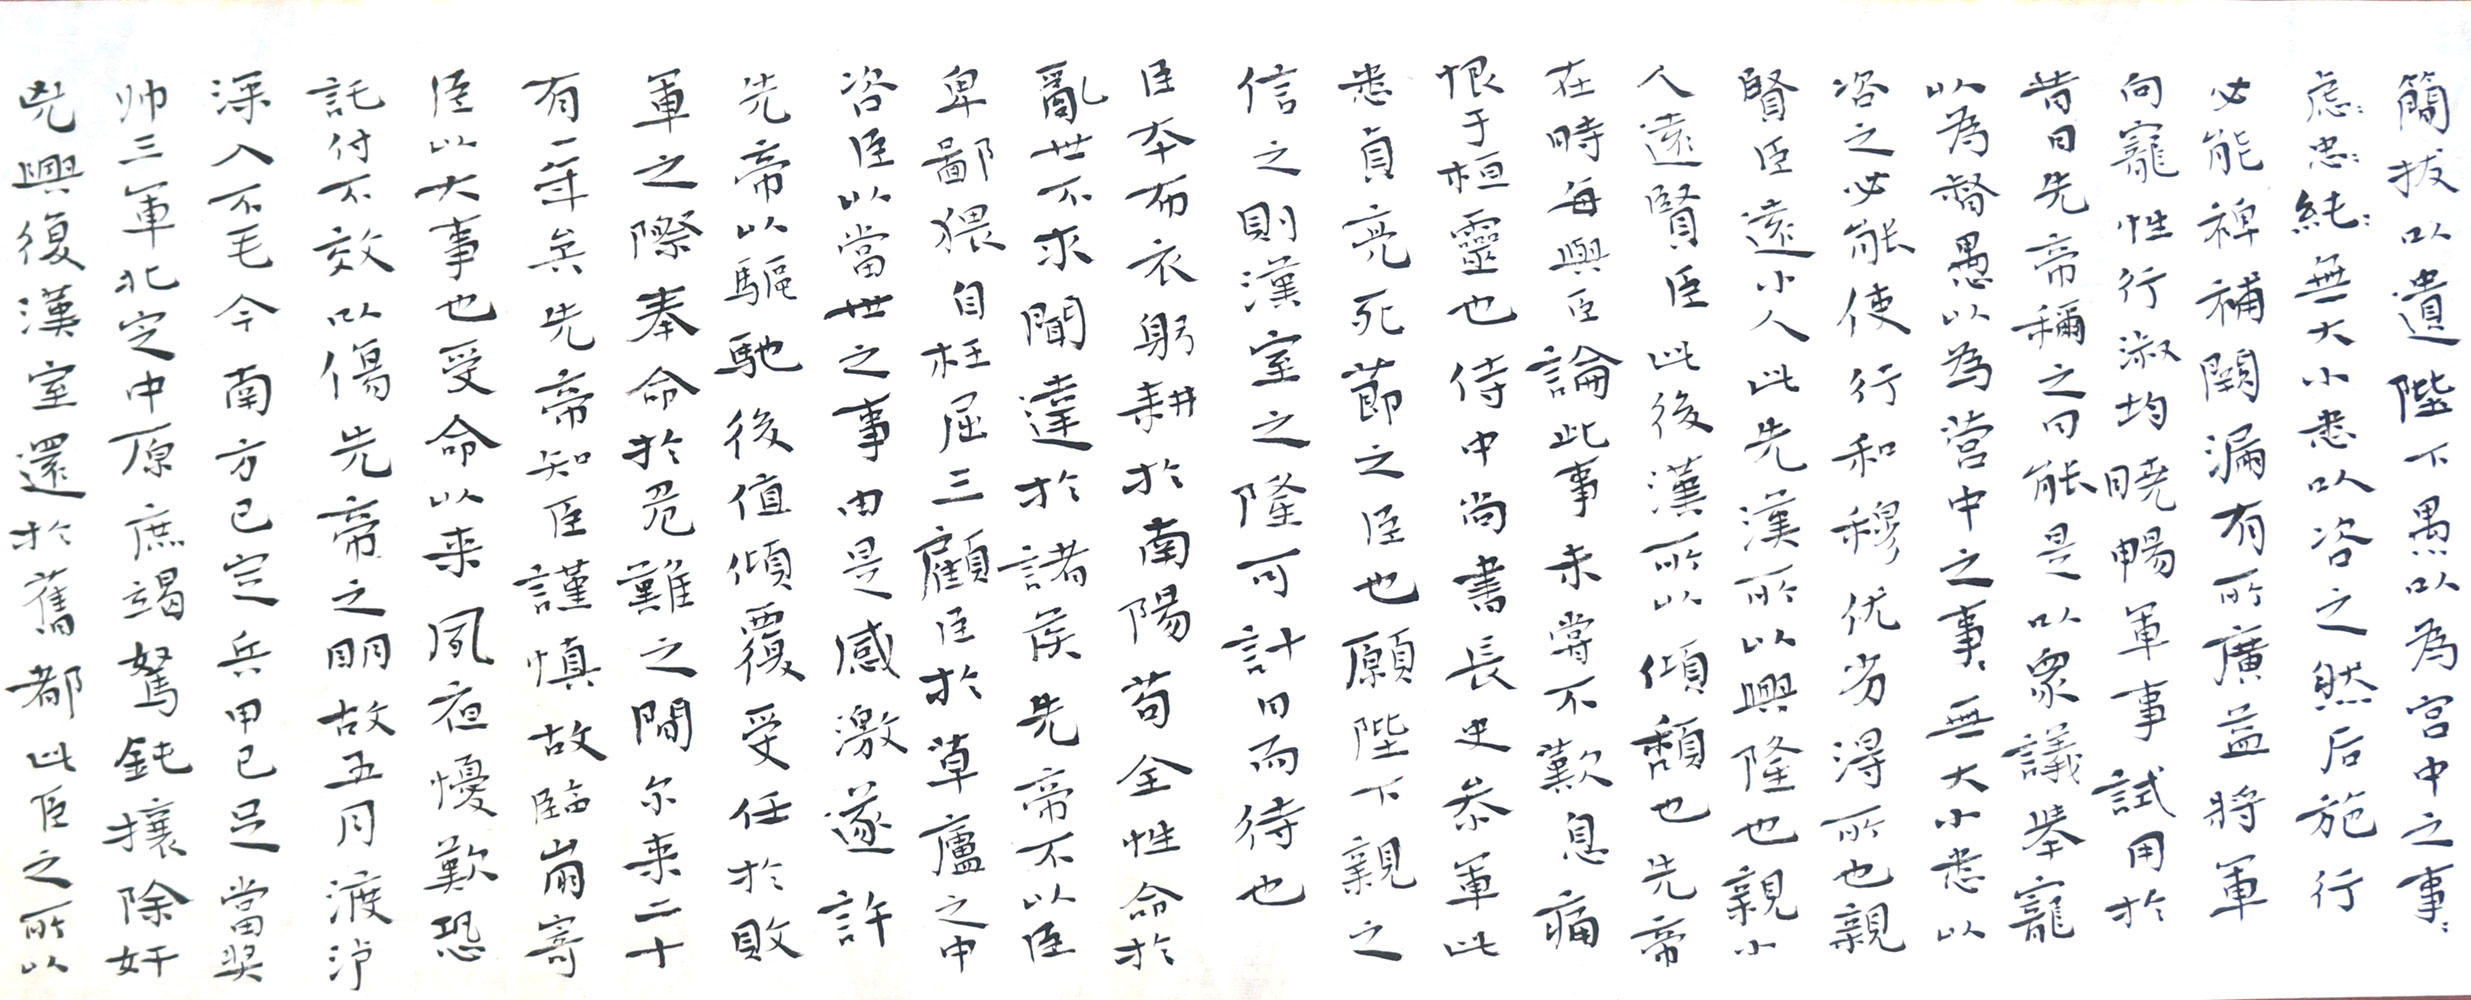 簡拔以遺陛下愚以為宮中之事:
慮:忠:純:無大小悉以咨之然后施行
必能裨補闕漏有所廣益將軍
向寵性行淑均曉暢軍事試用於
昔日先帝稱之曰能是以眾議舉寵
以為督愚以為營中之事無大小悉以
咨之必能使行和穆优劣得所也親
賢臣遠小人此先漢所以興隆也親小
人遠賢臣此後漢所以傾頹也先帝
在時每與臣論此事未嘗不歎息痛
恨于桓靈也侍中尚書長史參軍此
悉貞亮死節之臣也願陛下親之
信之則漢室之隆可計日而待也
臣本布衣躬耕於南陽苟全性命於
亂世不求聞達於諸侯先帝不以臣
卑鄙猥自枉屈三顧臣於草廬之中
咨臣以當世之事由是感激遂許
先帝以驅馳後值傾覆受任於敗
軍之際奉命於危難之間尔来二十
有一年矣先帝知臣謹慎故臨崩寄
臣以大事也受命以来夙夜憂歎恐
託付不效以傷先帝之明故五月渡泸
深入不毛今南方已定兵甲已足當奖
帅三軍北定中原庶竭駑鈍攘除奸
兇興復漢室還於舊都此臣之所以